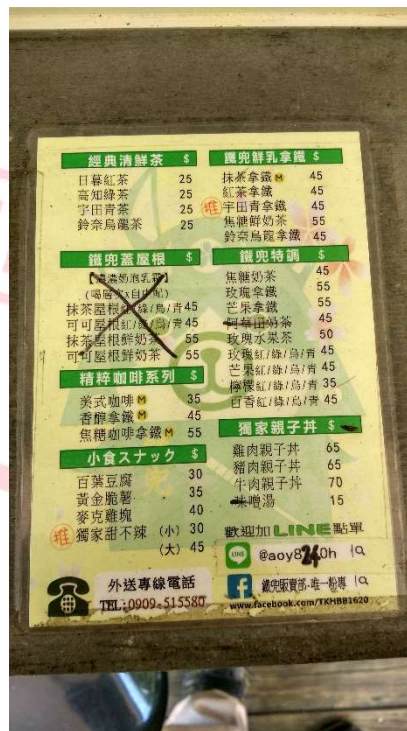 經典清鮮茶 $
日暮紅茶 25
高知綠茶 25
宇田青茶 25
鈴奈烏龍茶 25
鐵兜蓋屋根 $
抹茶屋根紅/綠/烏/青45
可可屋根紅/綠/烏/青45
抹茶屋根鮮奶茶 55
可可屋根鮮奶茶 55
精粹咖啡系列 $
美式咖啡M 35
香醇拿鐵M 45
焦糖咖啡拿鐵M 55
小食スナック $
百葉豆腐 30
黃金脆薯 35
麥克雞塊 40
推 獨家甜不辣 (小) 30
(大) 45
外送專線電話
TEL:0909-515580
鐵兜鮮乳拿鐵 $
抹茶拿鐵M 45
紅茶拿鐵 45
推 宇田青拿鐵 45
焦糖鮮奶茶 55
鈴奈烏龍拿鐵 45
鐵兜特調 $
焦糖奶茶 45
玫瑰拿鐵 55
芒果拿鐵 55
阿華田奶茶 45
玫瑰水果茶 50
玫瑰紅/綠/烏/青 45
芒果紅/綠/烏/青 45
檸檬紅/綠/烏/青 35
百香紅/綠/烏/青 45
獨家親子丼 $
雞肉親子丼 65
豬肉親子丼 65
牛肉親子丼 70
味噌湯 15
歡迎加LINE點單
LINE @aoy8240h
鐵兜販賣部-唯一粉專
www.facebook.com/TKHBB1620